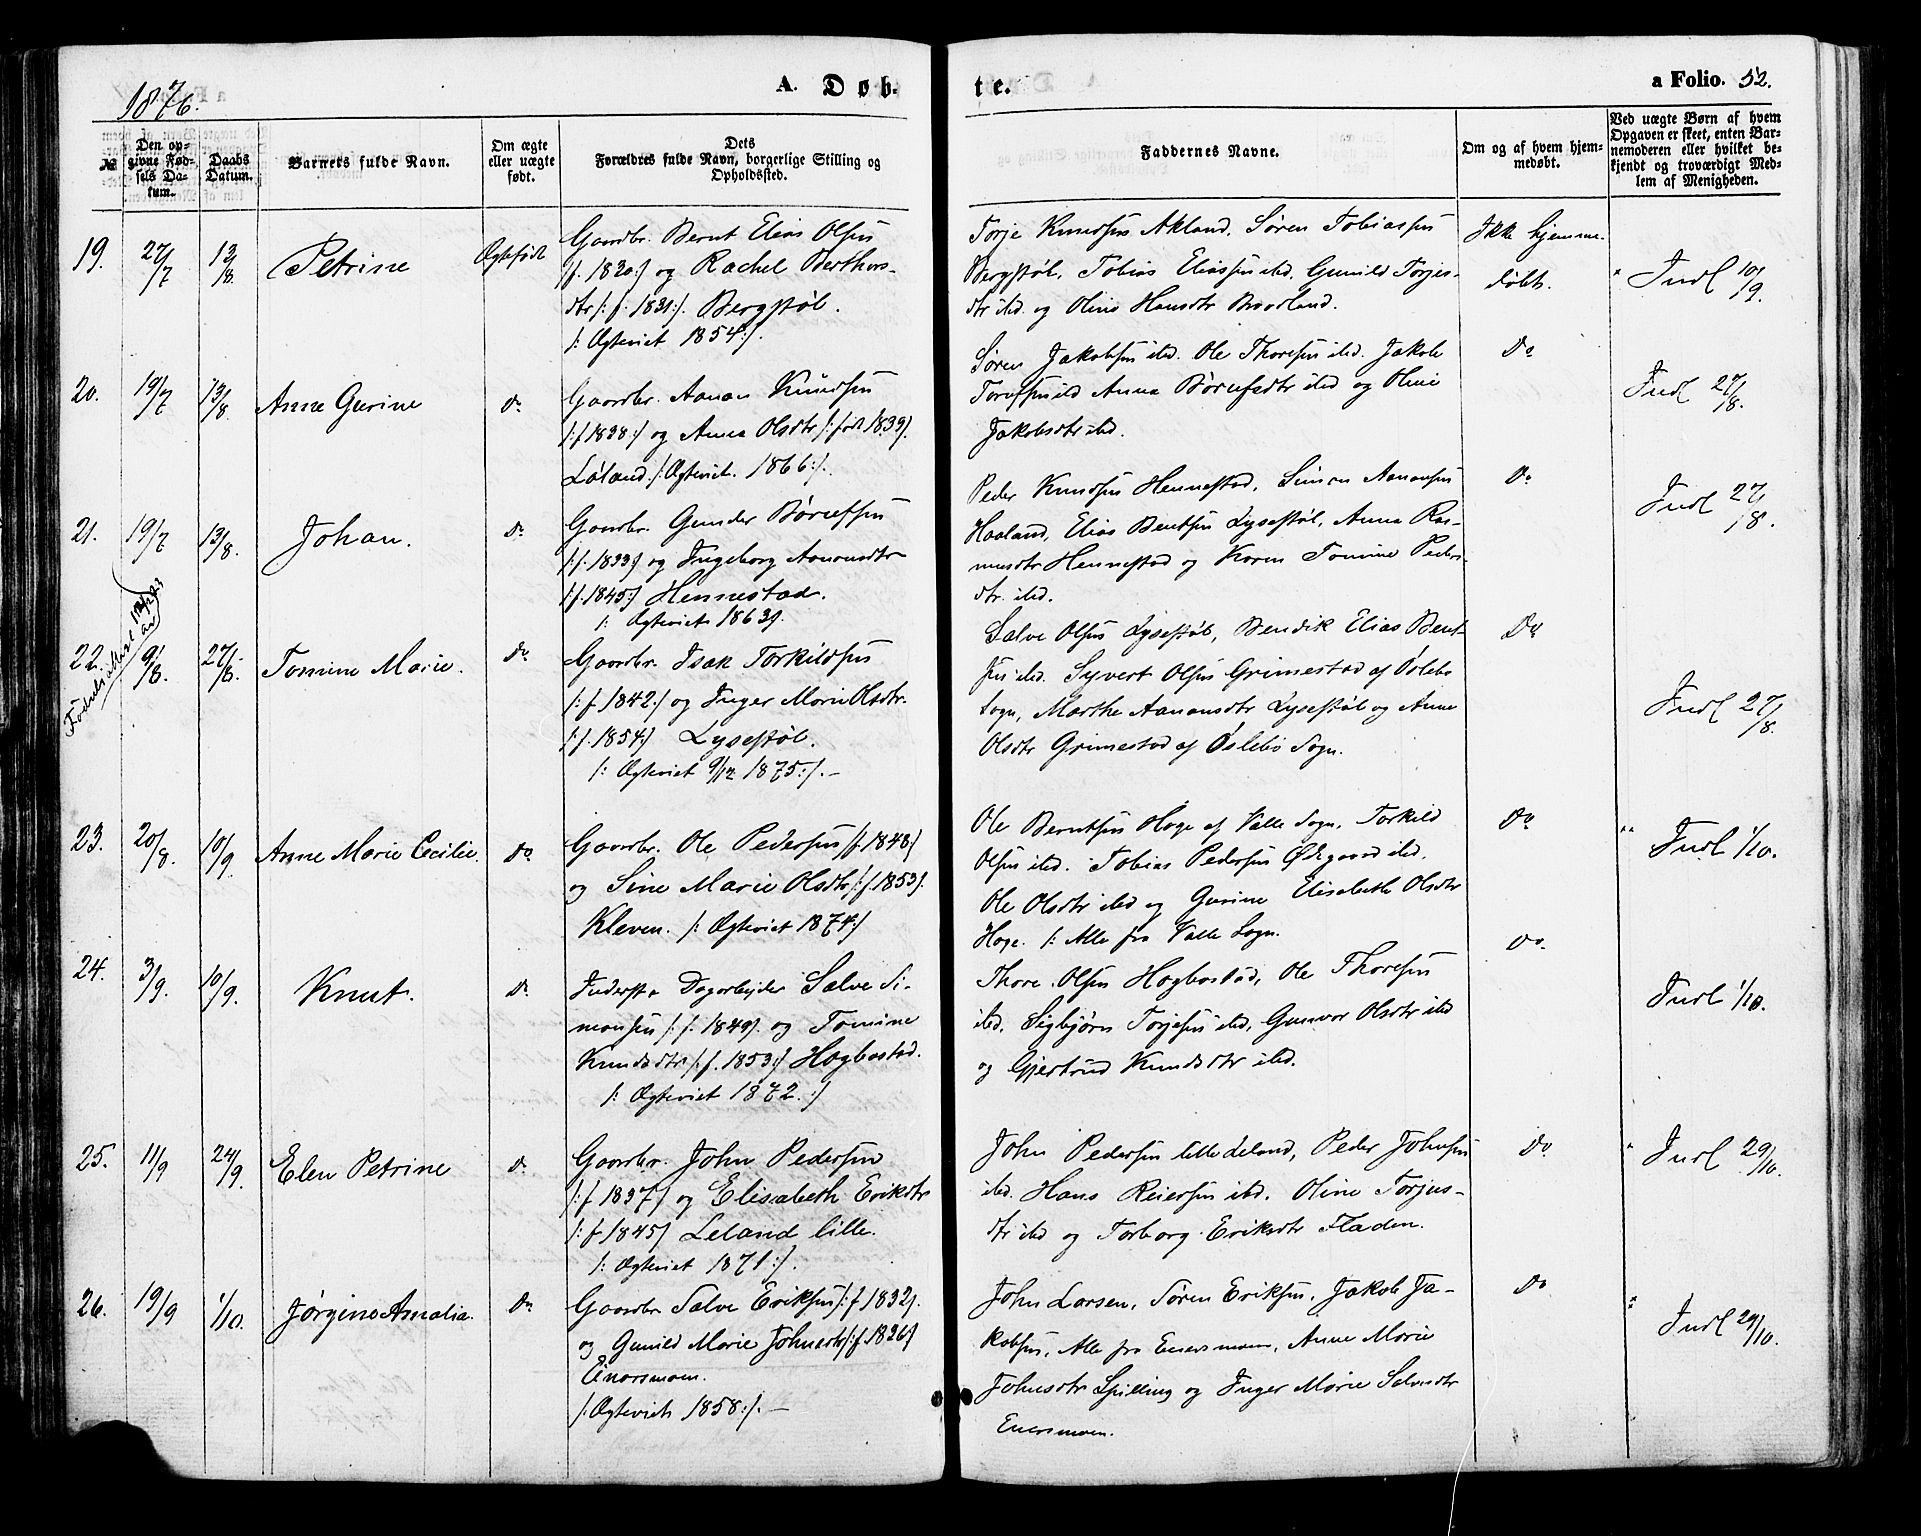 1876.
A. Døb-
te.
a Folio. 52.
№
Den op-
givne Fød-
sels Da-
tum.
Daabs
Datum.
Barnets fulde Navn.
Om ægte
eller uægte
født.
Dets
Forældres fulde Navn, borgerlige Stilling og
Opholdssted.
Faddernes Navne.
Om og af hvem hjem-
medøbt.
Ved uægte Børn af hvem
Opgaven er skeet, enten Bar-
nemoderen eller hvilket be-
kjendt og troværdigt Med-
lem af Menigheden.
19. 27/7 13/8 Petrine Ægtefødt
Gaardbr. Bernt Elias Olsen
/:f. 1820:/ og Rachel Berthos-
dtr /:f. 1831:/. Bergstøl.
/: Ægteviet 1854:/.
Torje Knudsen Akland, Søren Tobiassen
Bergstøl, Tobias Eliassen ibd. Gunild Torjes-
dtr ibd. og Oline Hansdtr
Ikke hjemme-
døbt.
Indl 10/9.
20. 19/7 13/8 Anne Gurine do
Gaardbr. Aanon Knudsen
/:f 1838:/ og Anna Olsdtr /:født 1839/.
Løland /: Ægteviet. 1866:/.
Søren Jakobsen ibd. Ole Thoresen ibd. Jakob
ibd Anna Børufsdtr ibd og Oline
Jakobsdtr ibd.
Do
Indl 27/8.
21. 19/7 13/8. Johan. do
Gaardbr. Gunder Børufsen
/:f. 1833/ og Ingeborg Aanonsdtr
/:f. 1845:/ Hennestad.
/: Ægteviet 1863/.
Peder Knudsen Hennestad, Simon Aanonsen
Haaland, Elias Bentsen Lysestøl, Anna Ras-
musdtr Hennestad og Karen Tomine Peders-
dtr. ibd.
Do
Indl 27/8.
Fødselsattest
22. 9/8. 27/8. Tomine Marie. do
Gaardbr. Isak Torkildsen
/:f 1842:/ og Inger Marie Olsdtr.
/:f. 1854:/ Lysestøl.
/: Ægteviet 9/12 1875:/. –
Salve Olsen Lysestøl, Bendik Elias Bent-
sen ibd. Syvert Olsen Grimestad af Øslebø
Sogn, Marthe Aanonsdtr Lysestøl og Anne
Olsdtr Grimestad af Øslebø Sogn.
Do
Indl 27/8.
23. 20/8. 10/9 Anne Marie Cecilie. do
Gaardbr. Ole Pedersen /f. 1848:/
og Sine Marie Olsdtr /:f. 1853/.
Kleven. /: Ægteviet 1874:/
Ole Berntsen Høge af Valle Sogn, Torkild
Olsen ibd. Tobias Pedersen Ødegaard ibd.
Ole Olsdtr ibd og Gurine Elisabeth Olsdtr
Høge. /: Alle fra Valle Sogn.
Do
Indl 1/10.
24. 3/9. 10/9. Knut. do
Inderst o Dagarbejder Salve Si-
monsen /:f. 1849/. og Tomine
Knudsdtr /:f. 1853:/ Høgbostad.
/: Ægteviet 1872.:/
Thore Olsen Høgbostad, Ole Thoresen
ibd. Sigbjørn Torjesen ibd, Gunvor Olsdtr ibd
og Gjertrud Knudsdtr ibd.
Do.
Indl 1/10.
25. 11/9 24/9. Elen Petrine do
Gaardbr. John Pedersen
/:f 1837/ og Elisabeth Eriksdtr
/:f 1845/ Leland lille.
/: Ægteviet 1871:/.
John Pedersen lille Leland, Peder Johnsen
ibd. Hans Reiersen ibd. Oline Torjus-
dtr ibd og Torborg Eriksdtr Fladen.
Do
Indl 29/10.
26. 19/9 1/10. Jørgine Amalia. do
Gaardbr Salve Eriksen /:f 1832/.
og Gunild Marie Johnsdtr /:f. 1836/
Einarsmoen.
/: Ægteviet 1858:/. –
John Larsen, Søren Eriksen, Jakob Ja-
kobsen, Alle fra Einarsmoen, Anne Marie
Johnsdtr Spilling og Inger Marie Salvesdtr
Einersmoen.
Do
Indl 29/10.